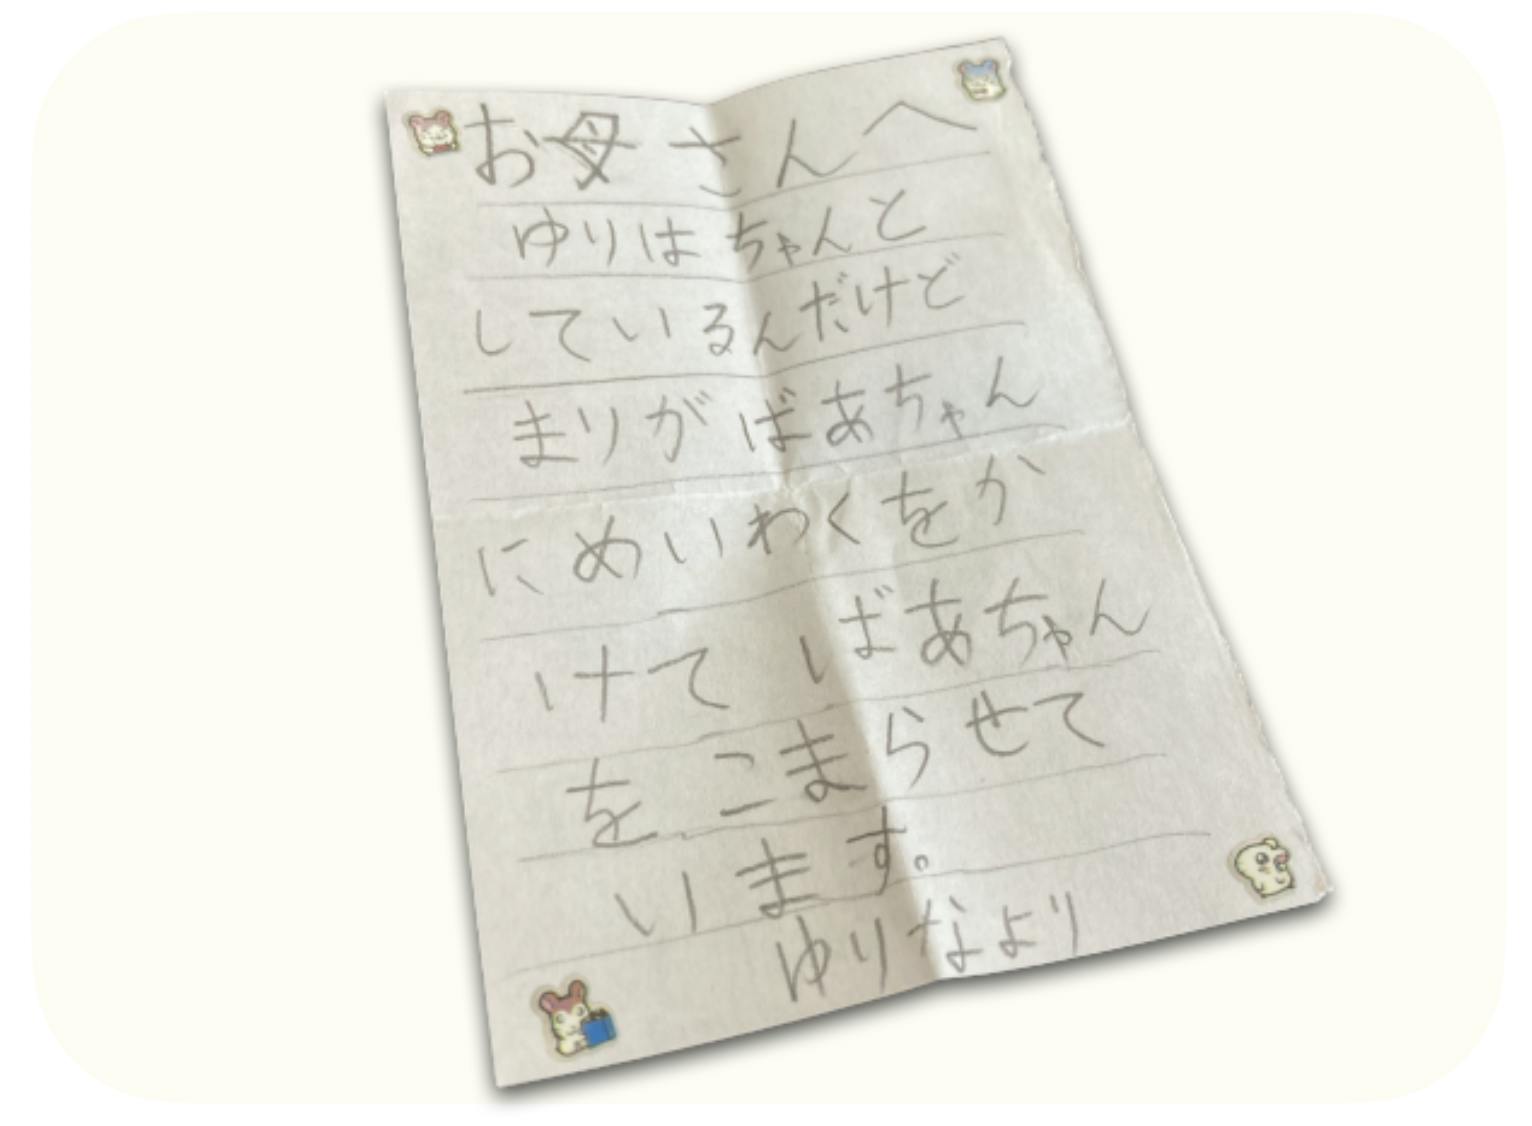 お母さんへ
ゆりはちゃんと
しているんだけど
まりがばあちゃん
にめいわくをか
けて ばあちゃん
をこまらせて
います。
ゆりなより